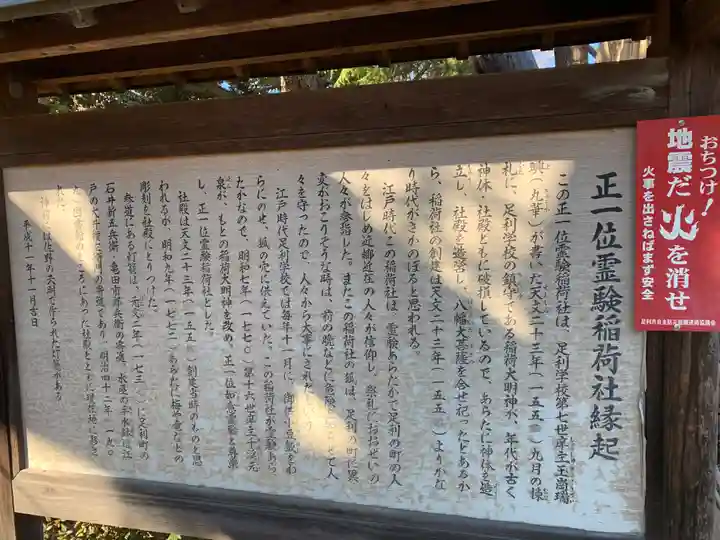 正一位霊験稲荷社縁起
この正一位霊験稲荷社は、足利学校第七世庠主玉崗瑞
璵（九華）が書いた天文二十三年（一五五四）九月の棟
札に、足利学校の鎮守である稲荷大明神が、年代が古く
神体・社殿ともに破損しているので、あらたに神体を造
立し、社殿を造営し、八幡大菩薩を合せ祀ったとあるか
ら、稲荷社の創建は天文二十三年（一五五四）よりかな
り時代がさかのぼると思われる。
江戸時代、この稲荷社は、霊験あらたかで足利の町の人
々をはじめ近郷近在の人々が信仰し、祭礼にはおおぜいの
人々が参指した。またこの稲荷社の狐は、足利の町に異
変がおこりそうな時は、前の晩などに
々を守ったので、人々から大事にされた
江戸時代足利学校では毎年十一月に、
らにのせ、狐の穴に供えていた。この稲荷社が霊験あら
たかなので、明和七年（一七七〇）第十六世庠主千渓元
泉が、もとの稲荷大明神を改め、正一位如意霊験と尊崇
し、正一位霊験稲荷社とした。
社殿は天文二十三年（一五五四）創建当時のものと思
われるが、明和九年（一七七二）あらたに梅や竜などの
彫刻を社殿にとりつけた。
参道にある灯籠は、元文二年（一七三七）に足利町の
石井新五兵衛、亀田市郎兵衛の寄進、水屋の
戸の大
は、明治四十二年（一九〇
のところにあった社殿とともに現在地に移さ
れた。
は佐野の天明で作られた灯籠がある
平成十一年十一月吉日
おちつけ！
地震だ火を消せ
火事を出さねばまず安全